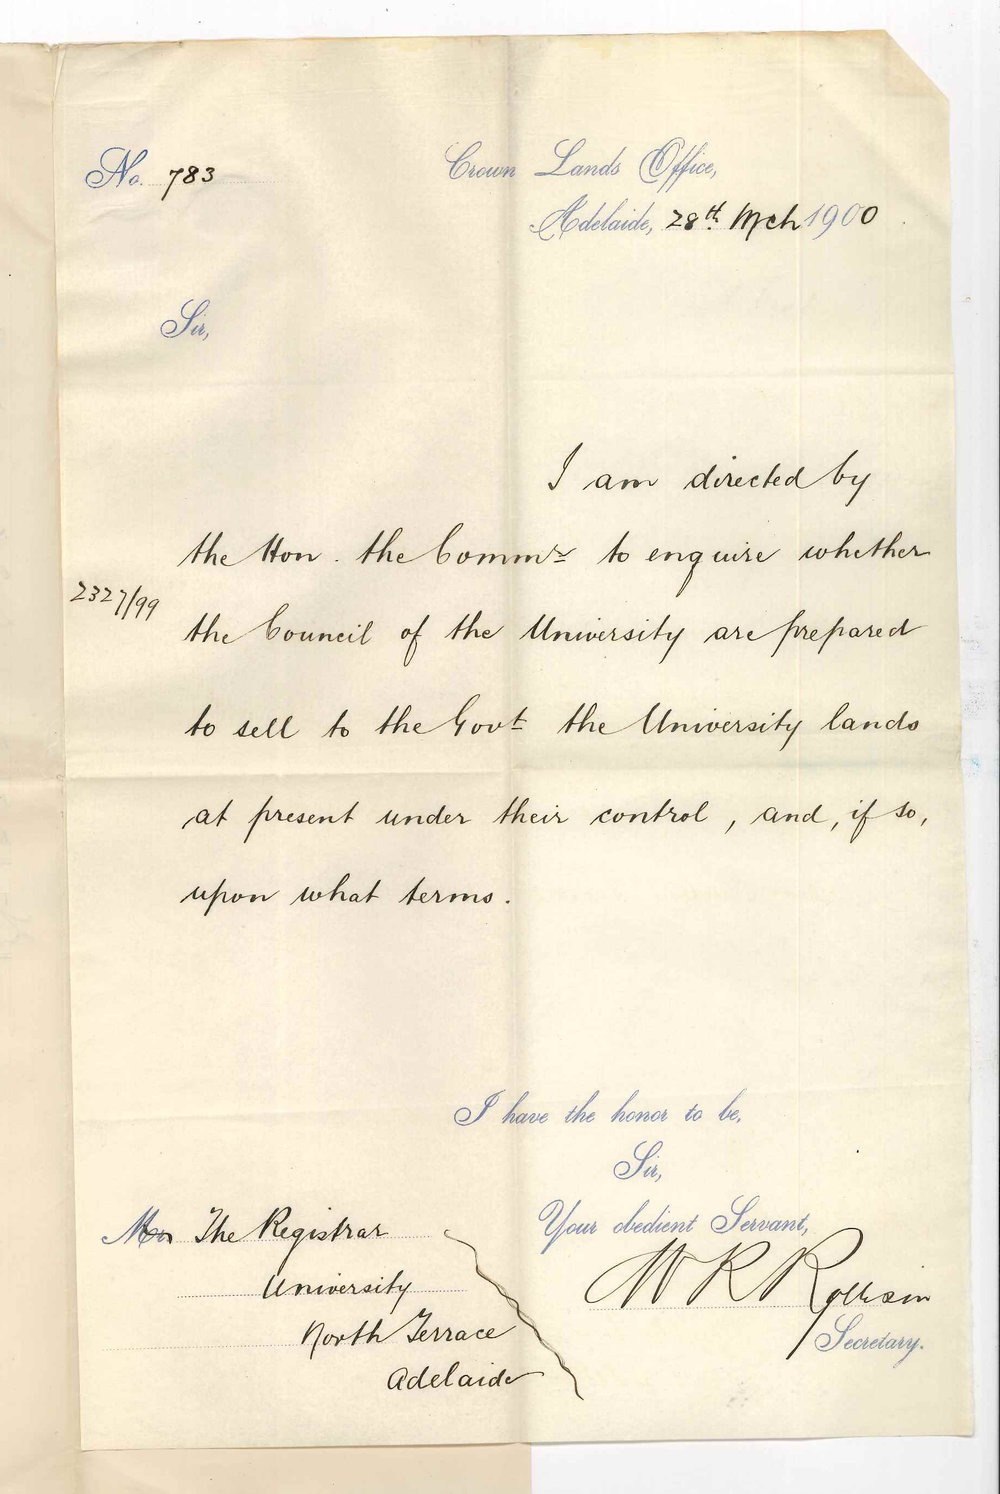 No. 783
Crown Lands Office,
Adelaide, 28th Mch 1900
Sir,
I am directed by
the Hon. the Commr to enquire whether
2327/99
the Council of the University are prepared
to sell to the Govt the University lands
at present under their control, and, if so,
upon what terms.
I have the honor to be,
Sir,
Your obedient Servant,
W R R
Secretary.
The Registrar
University
North Terrace
Adelaide